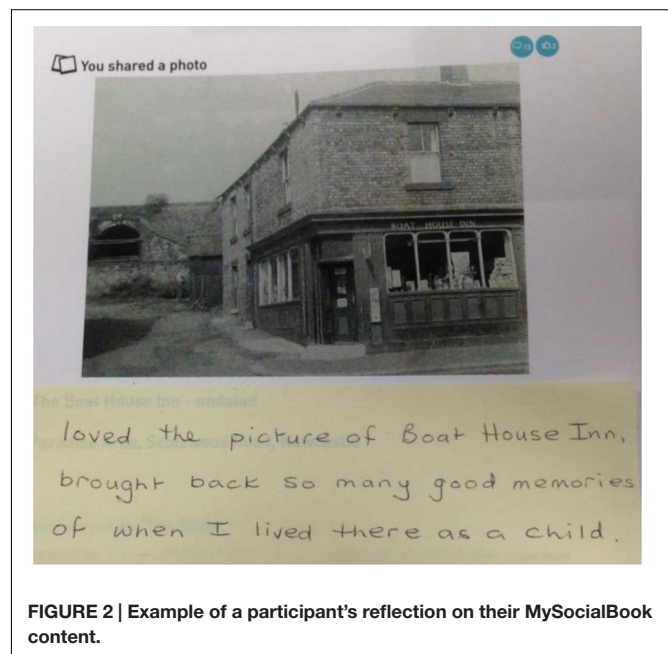 You shared a photo
13
BOAT HOUSE INN
The Boat House Inn - undated
loved the picture of Boat House Inn,
brought back so many good memories
of when I lived there as a child.
FIGURE 2 | Example of a participant's reflection on their MySocialBook
content.